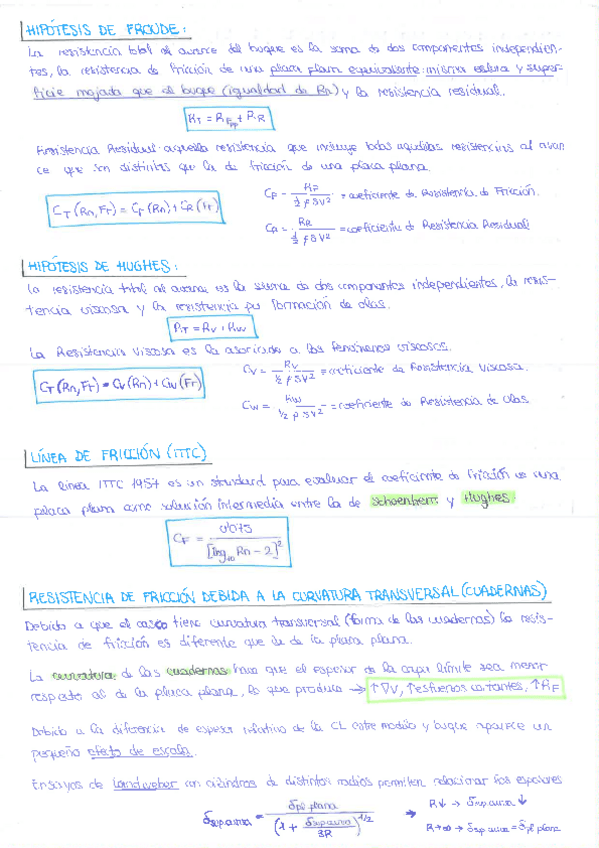 HIPÓTESIS DE FROUDE:
La resistencia total al avance del buque es la suma de dos componentes independien-
tes, la resistencia de fricción de una placa plana equivalente: misma eslora y super-
ficie mojada que el buque (igualdad de Rn) y la resistencia residual.
R_T = R_Fpp + R_R
Resistencia Residual: aquella resistencia que incluye todas aquellas resistencias al avan
ce que son distintas que la de fricción de una placa plana.
C_F = R_F / (½ ρ S V²) = coeficiente de Resistencia de Fricción.
C_T (Rn, Fr) = C_F (Rn) + C_R (Fr)
C_R = R_R / (½ ρ S V²) = coeficiente de Resistencia Residual
HIPÓTESIS DE HUGHES:
La resistencia total al avance es la suma de dos componentes independientes, la resis-
tencia viscosa y la resistencia por formación de olas.
R_T = R_V + R_W
La Resistencia Viscosa es la asociada a los fenómenos viscosos.
C_V = R_V / (½ ρ S V²) = coeficiente de Resistencia Viscosa.
C_T (Rn, Fr) = C_V (Rn) + C_W (Fr)
C_W = R_W / (½ ρ S V²) = coeficiente de Resistencia de Olas
LÍNEA DE FRICCIÓN (ITTC)
La línea ITTC 1957 es un standard para evaluar el coeficiente de fricción de una
placa plana como solución intermedia entre la de Schoenherr y Hughes.
C_F = 0'075 / [log₁₀ Rn - 2]²
RESISTENCIA DE FRICCIÓN DEBIDA A LA CURVATURA TRANSVERSAL (CUADERNAS)
Debido a que el casco tiene curvatura transversal (forma de las cuadernas) la resis-
tencia de fricción es diferente que la de la placa plana.
La curvatura de las cuadernas hace que el espesor de la capa límite sea menor
respecto al de la placa plana, lo que produce → ↑∇V, ↑esfuerzos cortantes, ↑R_F
Debido a la diferencia de espesor relativo de la CL entre modelo y buque aparece un
pequeño efecto de escala.
Ensayos de Landweber con cilindros de distintos radios permiten relacionar los espesores
δ = δ_pl plana / (1 + δ / 3R)^1/2 → R↓ → δ ↓
R→∞ → δ = δ_pl plana